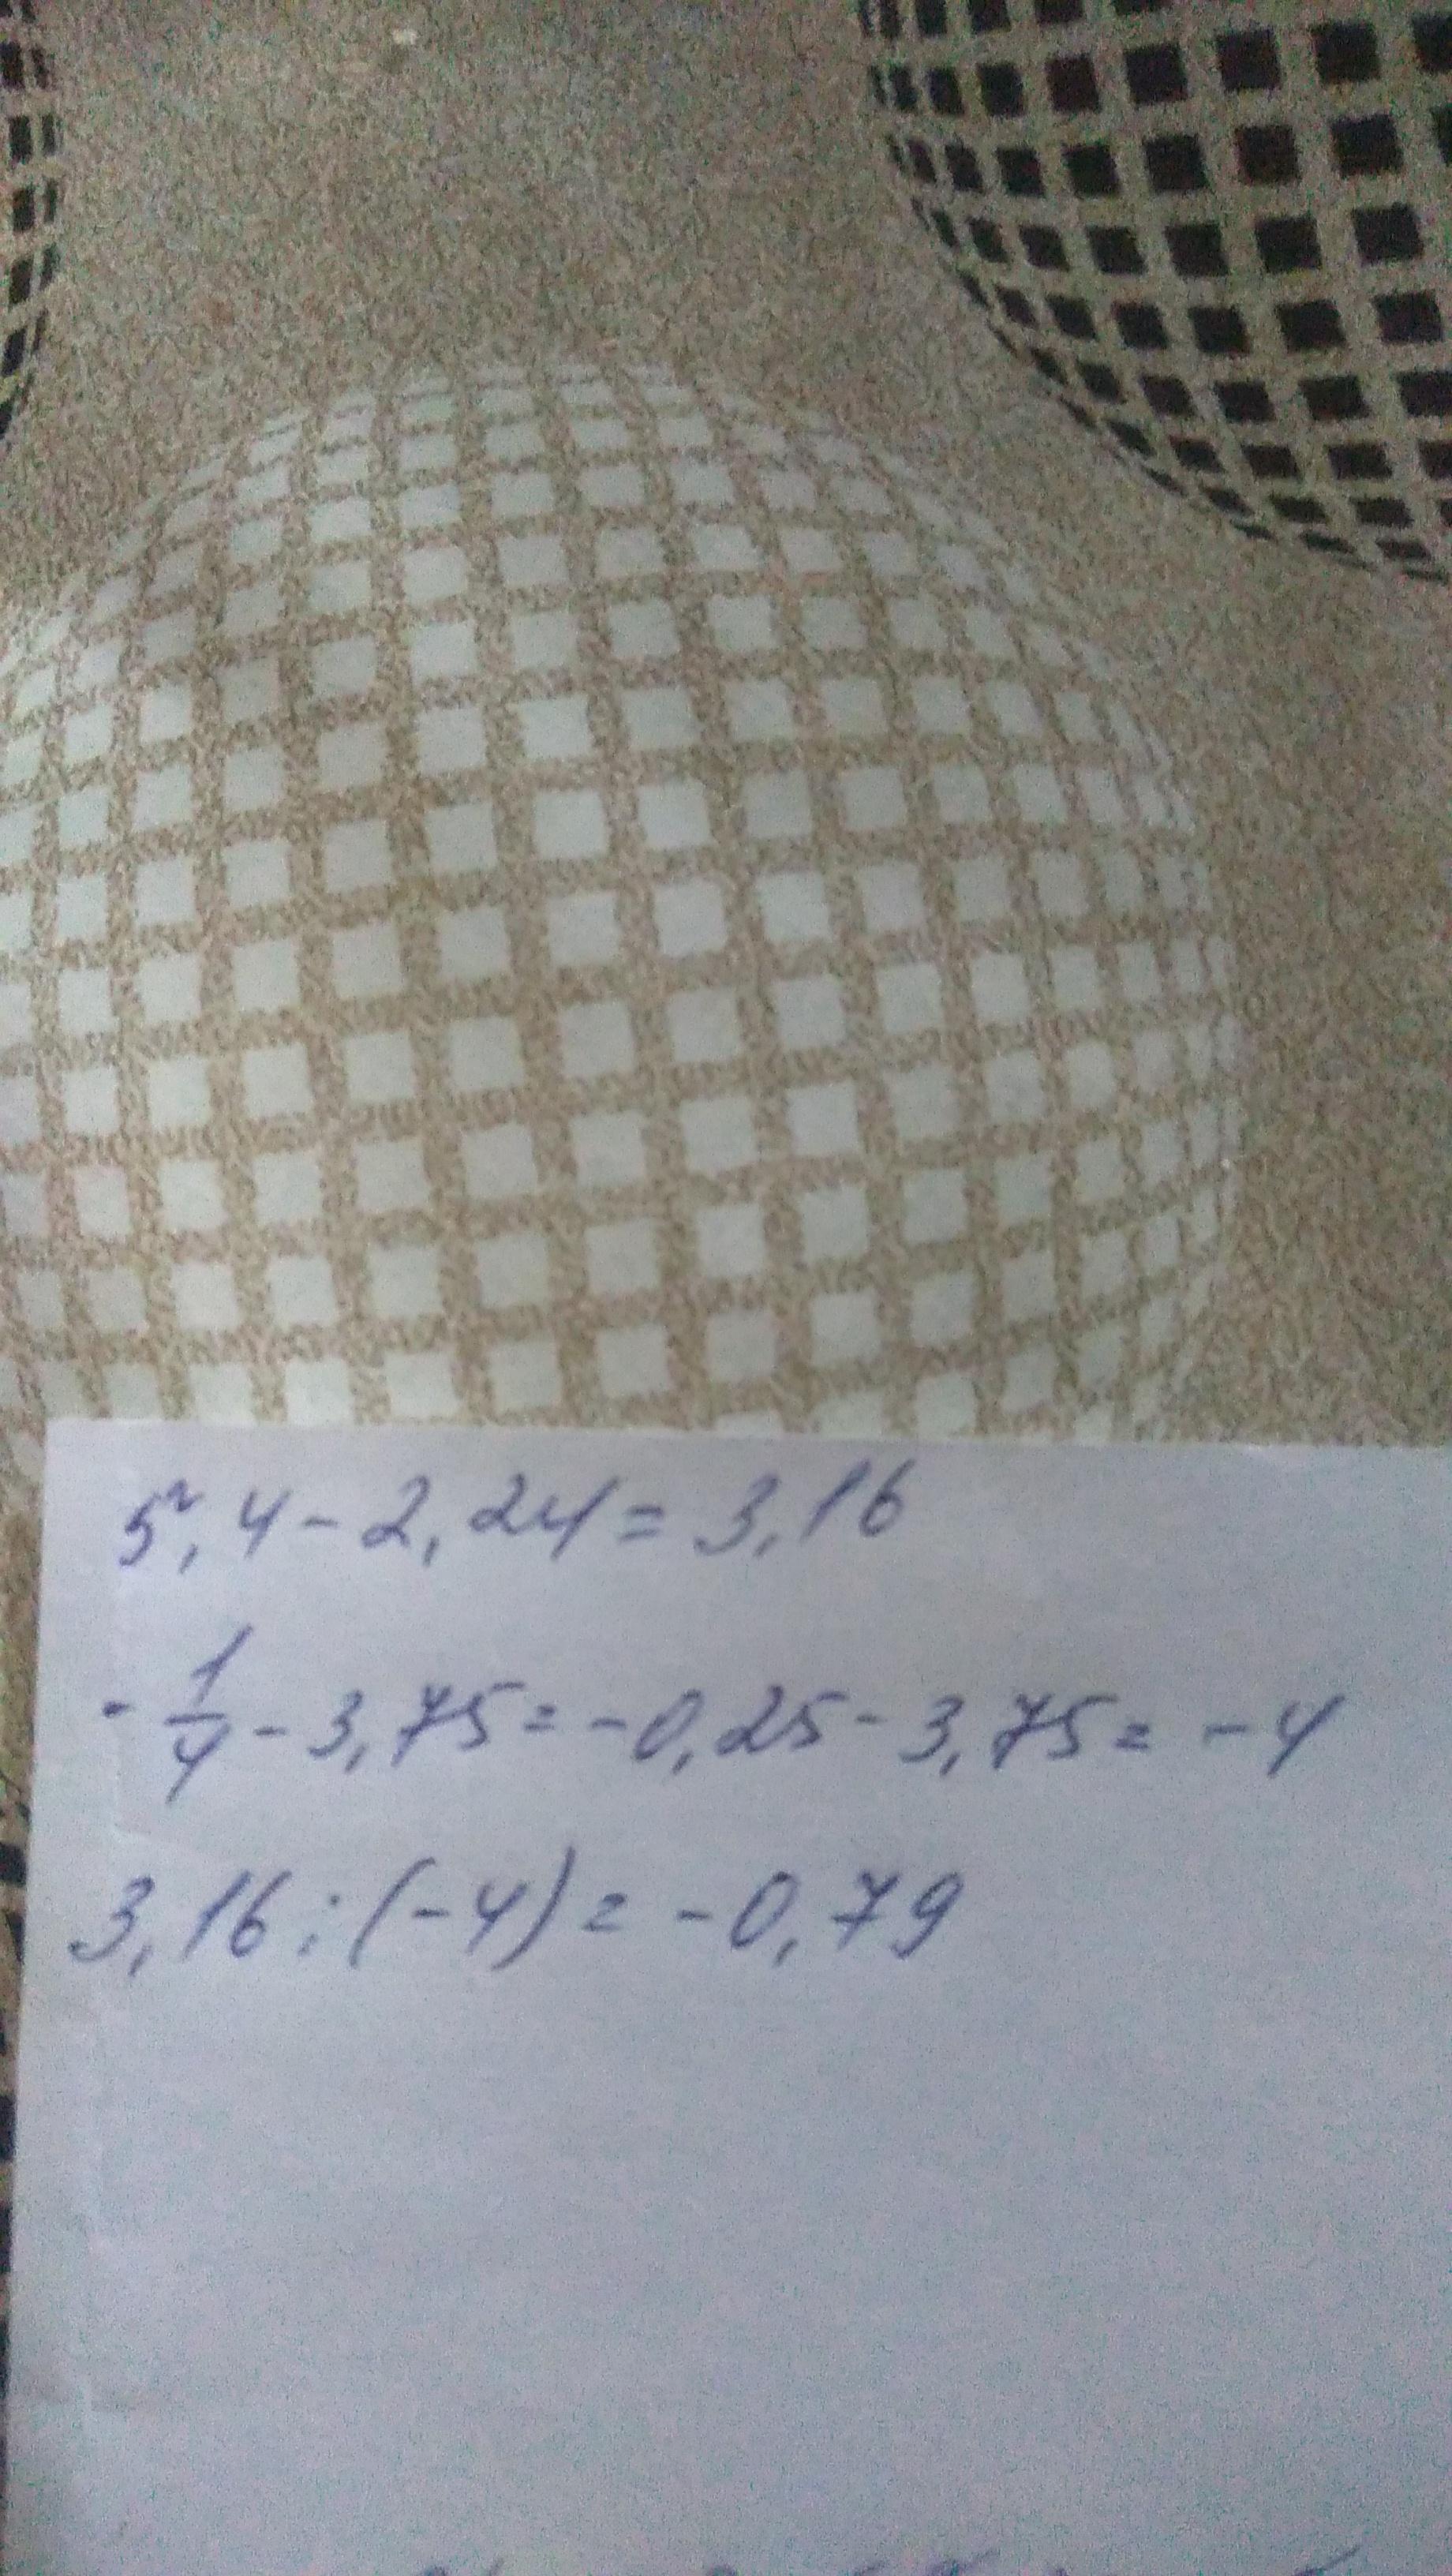 5,4 - 2,24 = 3,16
- 1/4 - 3,75 = -0,25 - 3,75 = -4
3,16 : (-4) = -0,79